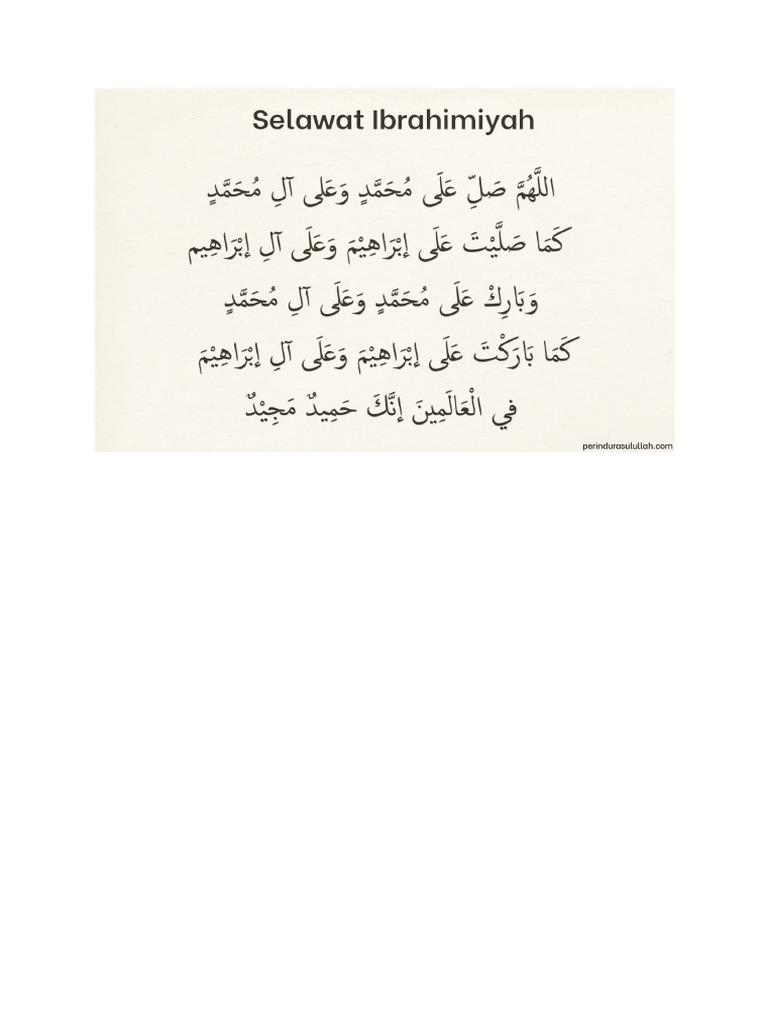 Selawat Ibrahimiyah
اللَّهُمَّ صَلِّ عَلَى مُحَمَّدٍ وَعَلى آلِ مُحَمَّدٍ
كَمَا صَلَّيْتَ عَلَى إبْرَاهِيْمَ وَعَلَى آلِ إبْرَاهِيم
وَبَارِكْ عَلَى مُحَمَّدٍ وَعَلَى آلِ مُحَمَّدٍ
كَمَا بَارَكْتَ عَلَى إبْرَاهِيْمَ وَعَلَى آلِ إبْرَاهِيْمَ
فِي الْعَالَمِينَ إنَّكَ حَمِيدٌ مَجِيْدٌ
perindurasulullah.com